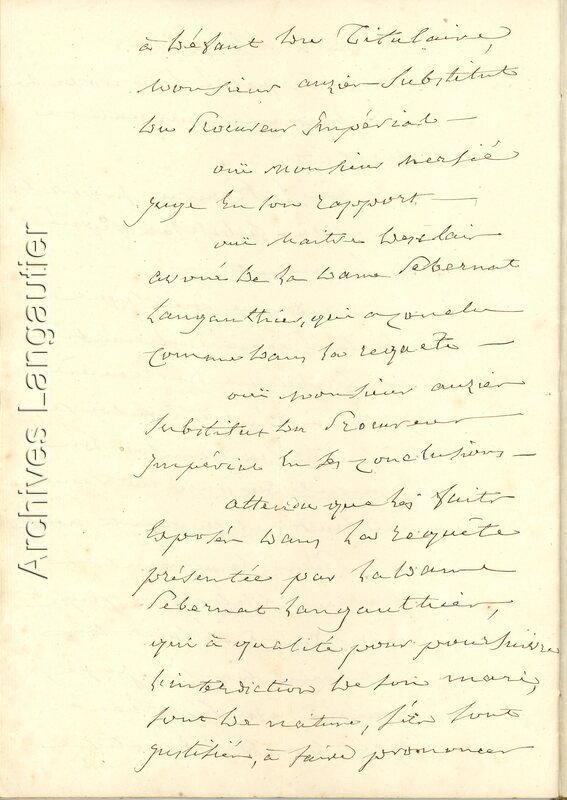 à défaut du Titulaire,
Monsieur auzier Substitut
du Procureur Impérial —
ouï Monsieur Mersié
juge En son rapport —
ouï Maître Desclair
avoué de La Dame Sebernat
Langauthier, qui a conclu
Comme dans La requête —
ouï Monsieur auzier
Substitut du Procureur
Impérial En ses Conclusions —
attendu que Les faits
Exposés dans La requête
présentée par La Dame
Sebernat Langauthier,
qui à qualité pour poursuivre
L'interdiction de son mari,
sont de nature, s'ils sont
justifiés, à faire prononcer
Archives Langautier